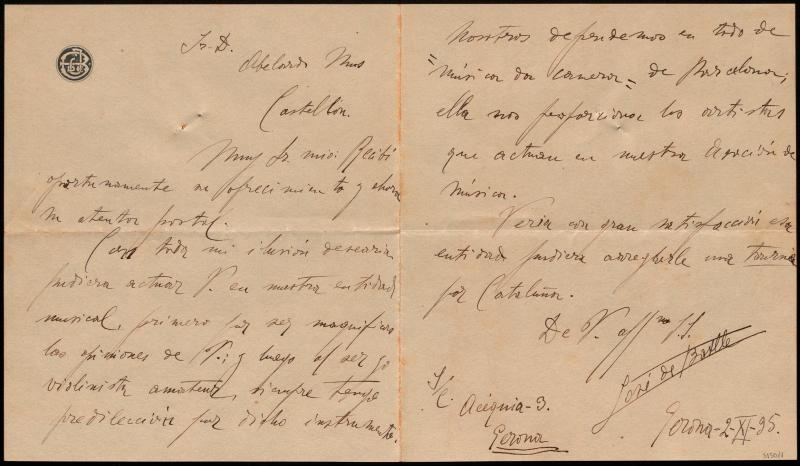 Sr. D.
Abelardo Mus
Castellón.
Muy Sr. mío: Recibí
oportunamente su ofrecimiento y ahora
su atenta postal.
Con toda mi ilusión desearía
pudiera actuar V. en nuestra entidad
musical, primero por ser magníficas
las opiniones de V.; y luego al ser yo
violinista amateur, siempre tengo
predilección por dicho instrumento.
Nosotros dependemos en todo de
"música da camera" de Barcelona;
ella nos proporciona los artistas
que actúan en nuestra Asociación de
Música.
Vería con gran satisfacción esa
entidad pudiera arreglarle una tournée
por Cataluña.
De V. affmo. S. S.
José de
S/C.
Acequia-3.
Gerona
Gerona-2-XI-35.